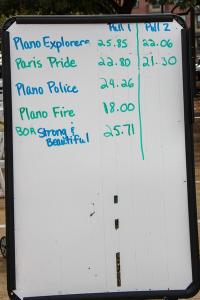 Pull 1 Pull 2
Plano Explorers 25.85 22.06
Paris Pride 22.80 21.30
Plano Police 24.26
Plano Fire 18.00
BOR Strong & Beautiful 25.71